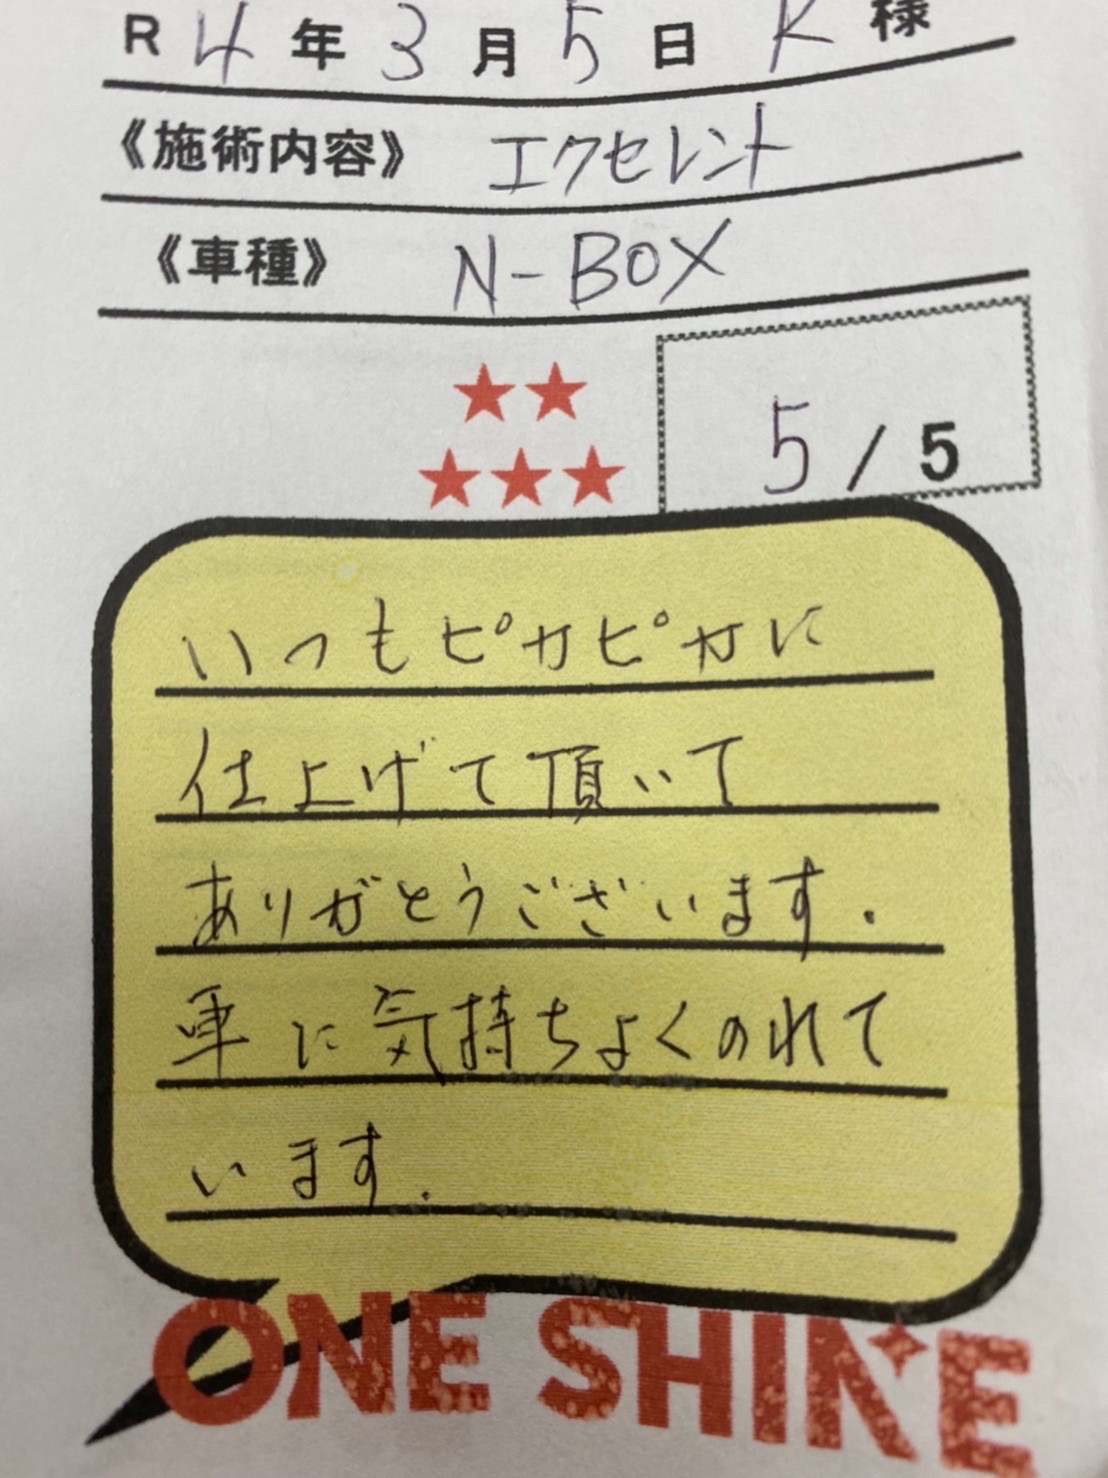 R 4 年 3 月 5 日 K 様
《施術内容》 エクセレント
《車種》 N-BOX
5 / 5
いつもピカピカに
仕上げて頂いて
ありがとうございます.
車に気持ちよくのれて
います.
ONE SHINE